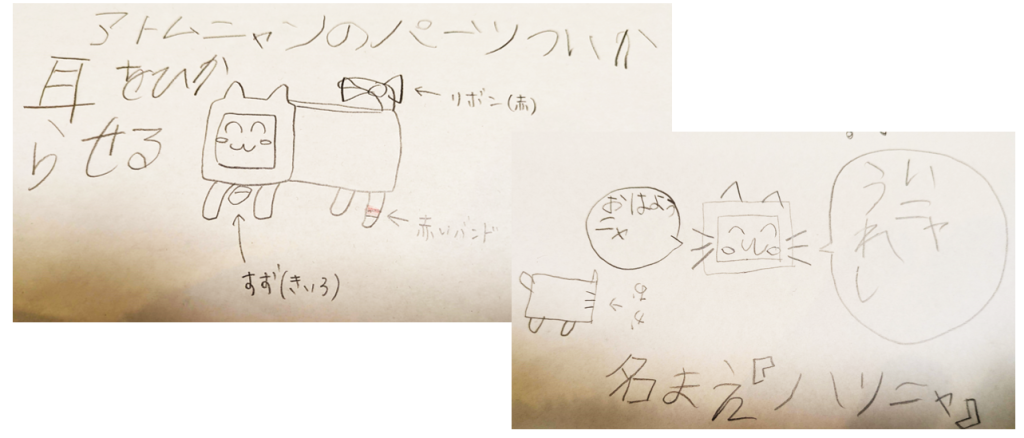 アトムニャンのパーツついか
耳をひか
らせる
リボン(赤)
赤いバンド
すず(きいろ)
おはよう
ニャ
うれし
いニャ
名まえ『ハツニャ』